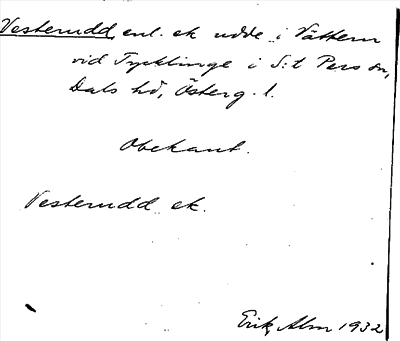 Vesterudd, enl. ek udde i Vättern
vid Tycklinge i S:t Pers sn,
Dals hd, Österg. l.
Obekant.
Vesterudd ek.
Erik Alm 1932